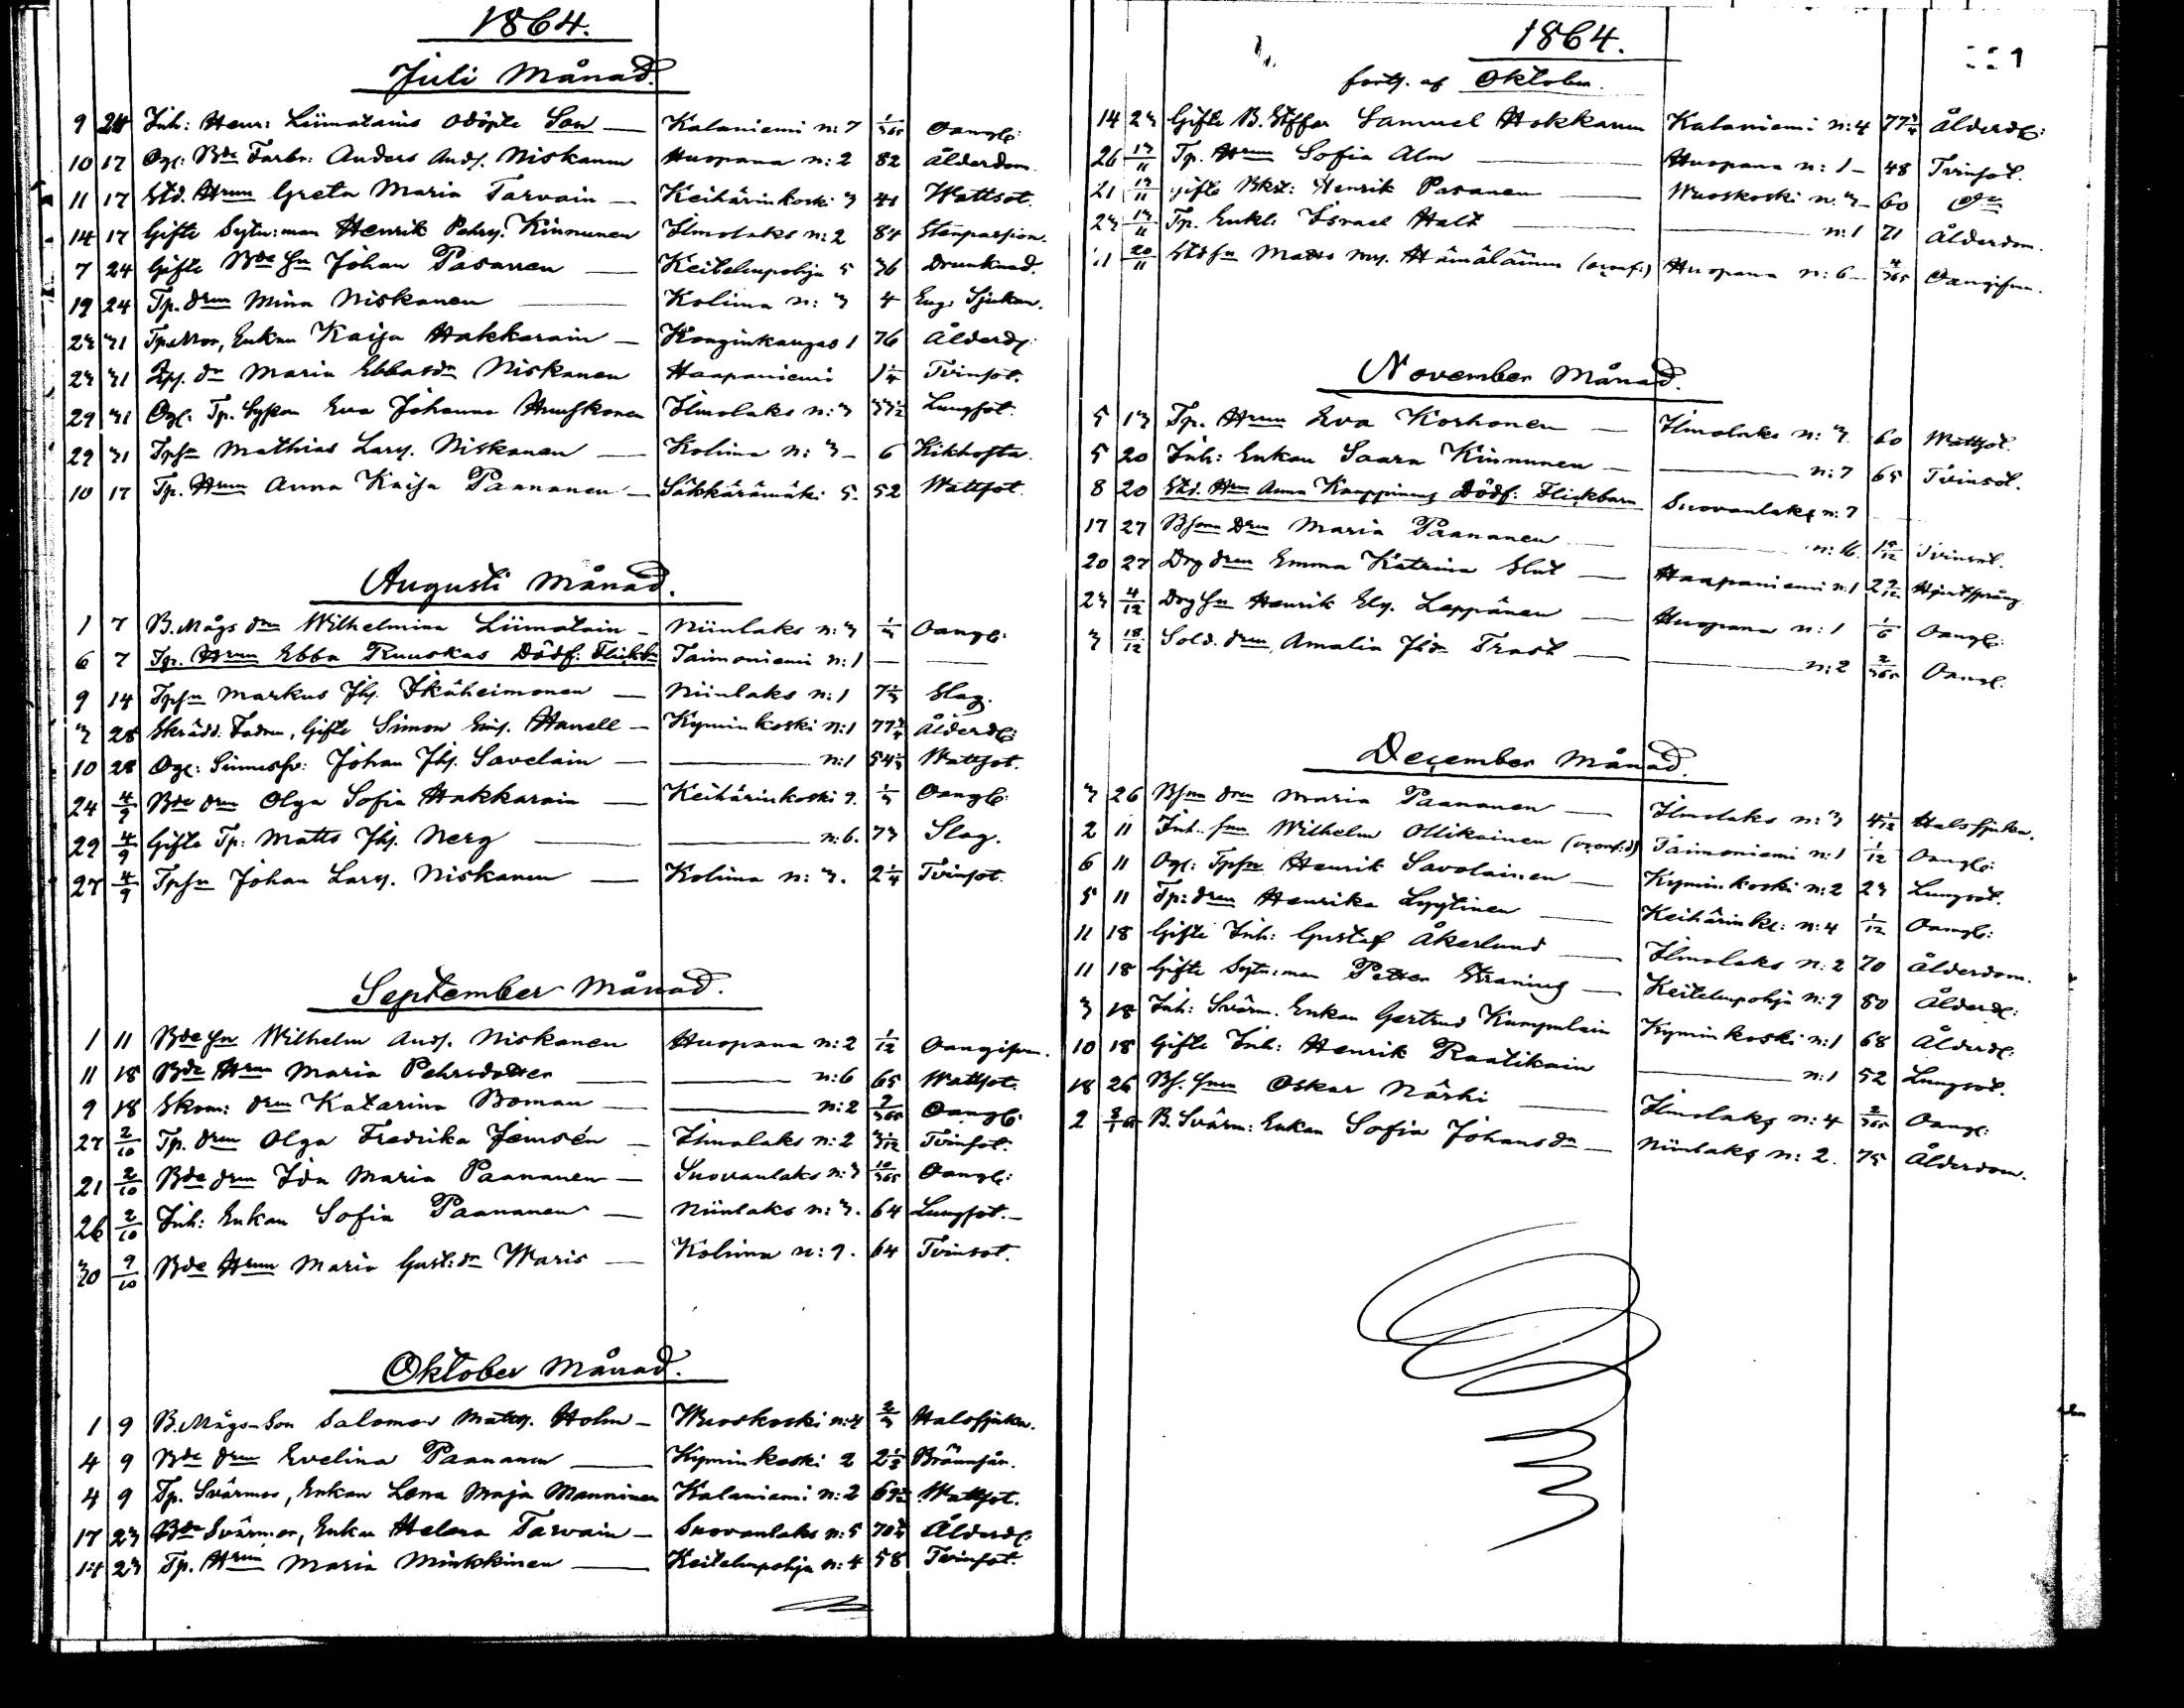 1864.
Juli Månad.
9 24 Inh: Henr: Liimatains odöpte Son — Kalaniemi n: 7 1/365 Oangl:
10 17 Ogl: Bde Farbr: Anders Ands. Niskanen Huopana n: 2 82 Ålderdom.
11 17 Std. Hrun Greta Maria Tarvain — Keihärinkoski 3 41 Wattsot.
14 17 Gifte Sytn:man Henrik Pehrs. Kinnunen Ilmolaks n: 2 84 Stenpassion.
7 24 Gifte Bde Sn Johan Pasanen — Keitelenpohja 5 36 Drunknad.
19 24 Tp. drn Mina Niskanen — Kolima n: 3 4 Eng. Sjukan.
23 31 Tp. Mor, Enkan Kaisa Hakkarain — Konginkangas 1 76 Ålderd:
23 31 dn Maria Ebbasdn Niskanen Haapaniemi 1 1/4 Tvinsot.
29 31 Ogl: Tp. Eva Johanna Ilmolaks n: 3 Lungsot.
29 31 Tpsn Mathias Lars. Niskanen — Kolima n: 3 — 6 Kikhosta.
10 17 Tp. Hrun Anna Kaisa Paananen — Säkkärämäki 5. 52 Wattsot.
Augusti Månad.
1 7 B. Mågs drn Wilhelmina Liimatain — Niinlaks n: 3 1/3 Oangl:
6 7 Tp. Hrun Ebba Ruuskas Dödf. Flickbn Taimoniemi n: 1 — —
9 14 Tpsn Markus Jhs. Ikäheimonen — Niinlaks n: 1 7 1/3 Slag.
3 28 Skrädd. Fadren, Gifte Simon Hanell — Kyminkoski n: 1 77 3/4 Ålderd:
10 28 Ogl: Sinnessv: Johan Jhs. Savelain — — n: 1 54 1/3 Wattsot.
24 4/9 Bde drn Olga Sofia Hakkarain — Keihärinkoski 9. 1/3 Oangl:
29 4/9 Gifte Tp: Matts Jhs. Nerg — — n: 6. 73 Slag.
27 4/9 Tpsn Johan Lars. Niskanen — Kolima n: 3. 2 1/4 Tvinsot.
September Månad.
1 11 Bde sn Wilhelm Ands. Niskanen Huopana n: 2 1/12 Oangifven.
11 18 Bde Hrun Maria Pehrsdotter — — n: 6 65 Wattsot.
9 18 Skom: drn Katarina Boman — — n: 2 7/365 Oangl:
27 2/10 Tp. drn Olga Fredrika Jemsén — Ilmolaks n: 2 3/12 Tvinsot.
21 2/10 Bde drn Ida Maria Paananen — Suovanlaks n: 3 10/365 Oangl:
26 2/10 Inh: Enkan Sofia Paananen — Niinlaks n: 3. 64 Lungsot. —
30 9/10 Bde Hrun Maria Gust:dn Waris — Kolima n: 9. 64 Tvinsot.
Oktober Månad.
1 9 B. Mågs-Son Salomon Matts. Holm — Wuoskoski n: 4 2/3 Halssjukn.
4 9 Bde drn Evelina Paananen — Kyminkoski 2 2 1/2 Brännsår.
4 9 Tp. Svärmor, Enkan Lena Maja Manninen Kalaniemi n: 2 Wattsot.
17 23 Bde Svärmor, Enkan Helena Tarvain — Suovanlaks n: 5 70 3/4 Ålderd:
14 23 Tp. Hrun Maria Minkkinen — Keitelenpohja n: 4 58 Tvinsot.
1864.
forts. af Oktober.
14 23 Gifte B. Styffar Samuel Hokkanen Kalaniemi n: 4 77 3/4 Ålderd:
26 13/11 Tp. Hrun Sofia Alm — Huopana n: 1 — 48 Tvinsot.
21 13/11 gifte Bkst: Henrik Pasanen — Wuoskoski n: 3 — 60 Do
23 13/11 Tp. Enkl. Israel Halt — — n: 1 71 Ålderdom.
11 20/11 Stdsn Matts Ms. Hämäläinen Huopana n: 6 — 4/365 Oangifven.
November Månad.
5 13 Tp. Hrun Eva Korhonen — Ilmolaks n: 3. 60 Wattsot.
5 20 Inh: Enkan Saara Kinnunen — — n: 7 65 Tvinsot.
8 20 Std. Hrn Anna Kauppinens Dödf. Flickbarn Suovanlaks n: 7
17 27 Bsons drn Maria Paananen — — n: 16. Tvinsot.
20 27 Drg drn Emma Katrina Slut — Haapaniemi n: 1 Hjertsprång
23 4/12 Drg Sn Henrik Els. Leppänen — Huopana n: 1 1/6 Oangl:
3 18/12 Sold. drn Amalia Jhdn Trast — — n: 2 2/365 Oangl:
December Månad.
3 26 Bsons drn Maria Paananen — Ilmolaks n: 3 4 1/12 Halssjukn.
2 11 Inh. snn Wilhelm Ollikainen Taimoniemi n: 1 1/12 Oangl:
6 11 Ogl: Tpsn Henrik Savolainen — Kyminkoski n: 2 23 Lungsot.
5 11 Tp: drn Henrika Lyytinen — Keihärinks: n: 4 1/12 Oangl:
11 18 Gifte Inh: Gustaf Åkerlund — Ilmolaks n: 2 70 Ålderdom.
11 18 Gifte Sytn:man Petter Kraning — Keitelenpohja n: 9 80 Ålderd:
3 18 Inh: Svärm. Enkan Gertrud Kumpulain Kyminkoski n: 1 68 Ålderd:
10 18 Gifte Inh: Henrik Raatikain — n: 1 52 Lungsot.
18 26 Bs. snn Oskar Närhi — Ilmolaks n: 4 2/365 Oangl:
2 B. Svärm: Enkan Sofia Johansdn — Niinlaks n: 2. 75 Ålderdom.